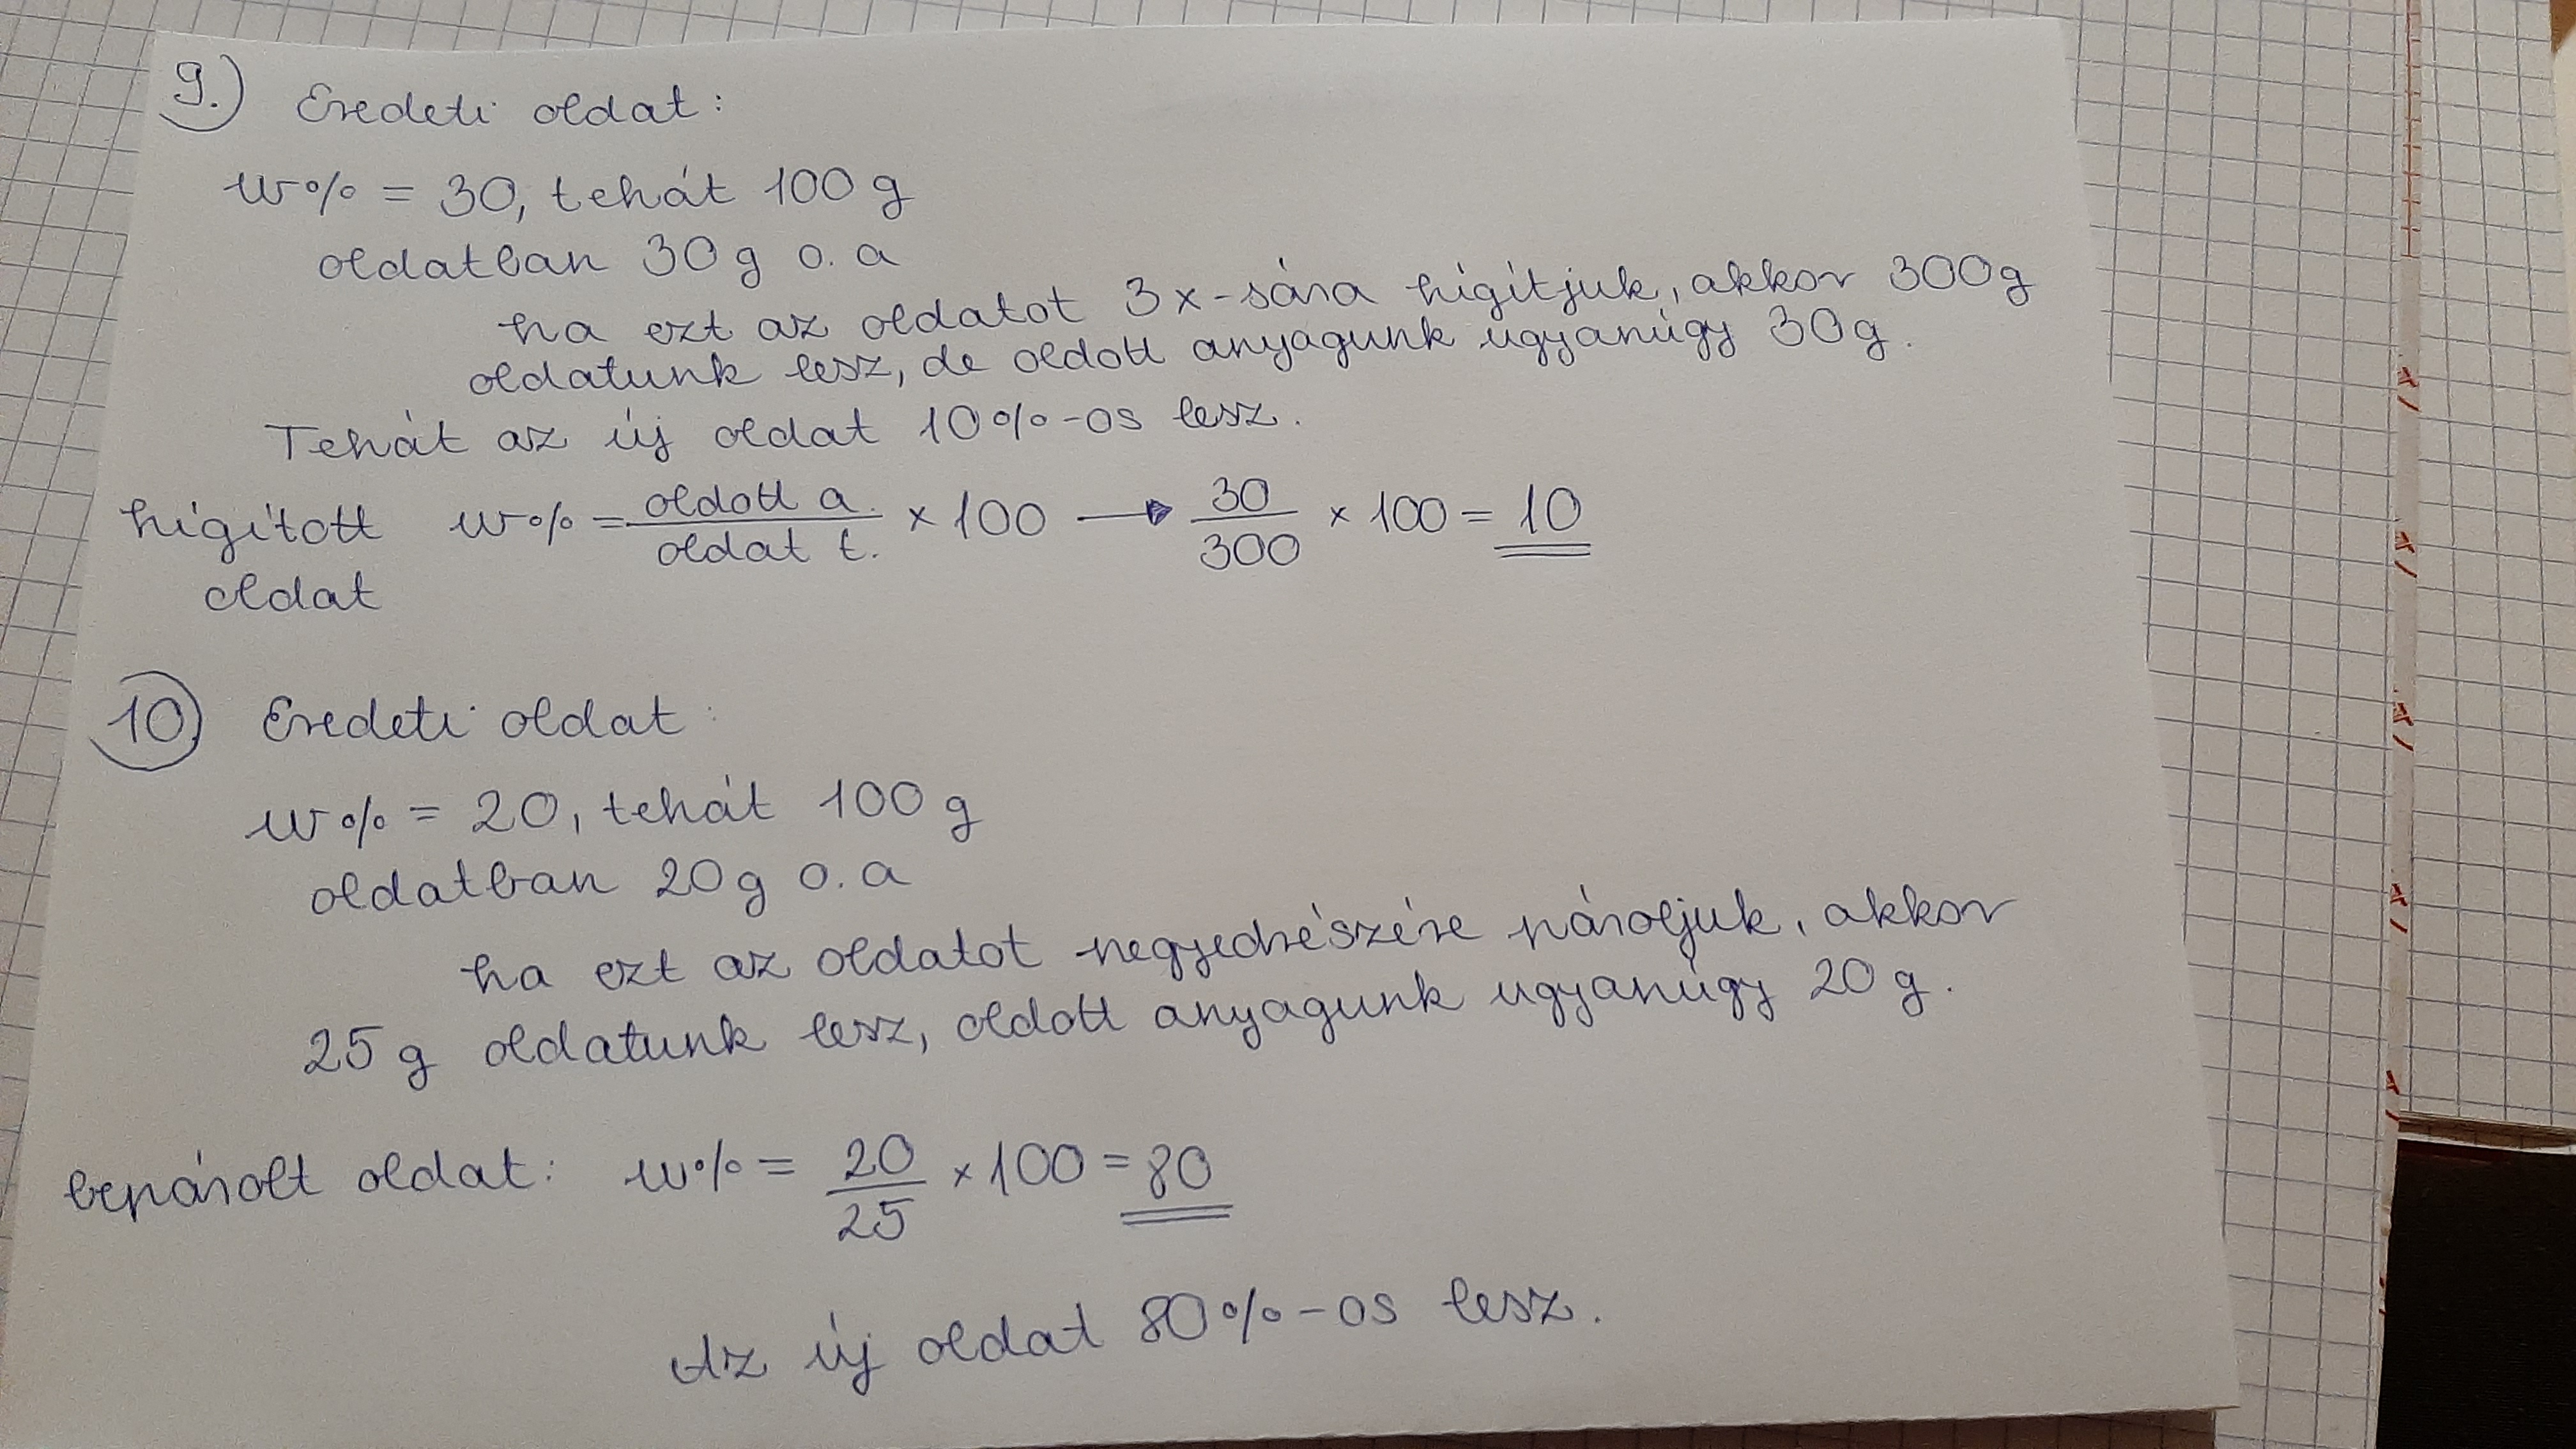 9.) Eredeti oldat:
w% = 30, tehát 100 g
oldatban 30 g o. a
ha ezt az oldatot 3x-sára hígítjuk, akkor 300g
oldatunk lesz, de oldott anyagunk ugyanúgy 30g.
Tehát az új oldat 10%-os lesz.
hígított oldat w% = oldott a. / oldat t. × 100 → 30/300 × 100 = 10
10.) Eredeti oldat:
w% = 20, tehát 100 g
oldatban 20g o. a
ha ezt az oldatot negyedrészére pároljuk, akkor
25 g oldatunk lesz, oldott anyagunk ugyanúgy 20 g.
bepárolt oldat: w% = 20/25 × 100 = 80
Az új oldat 80%-os lesz.